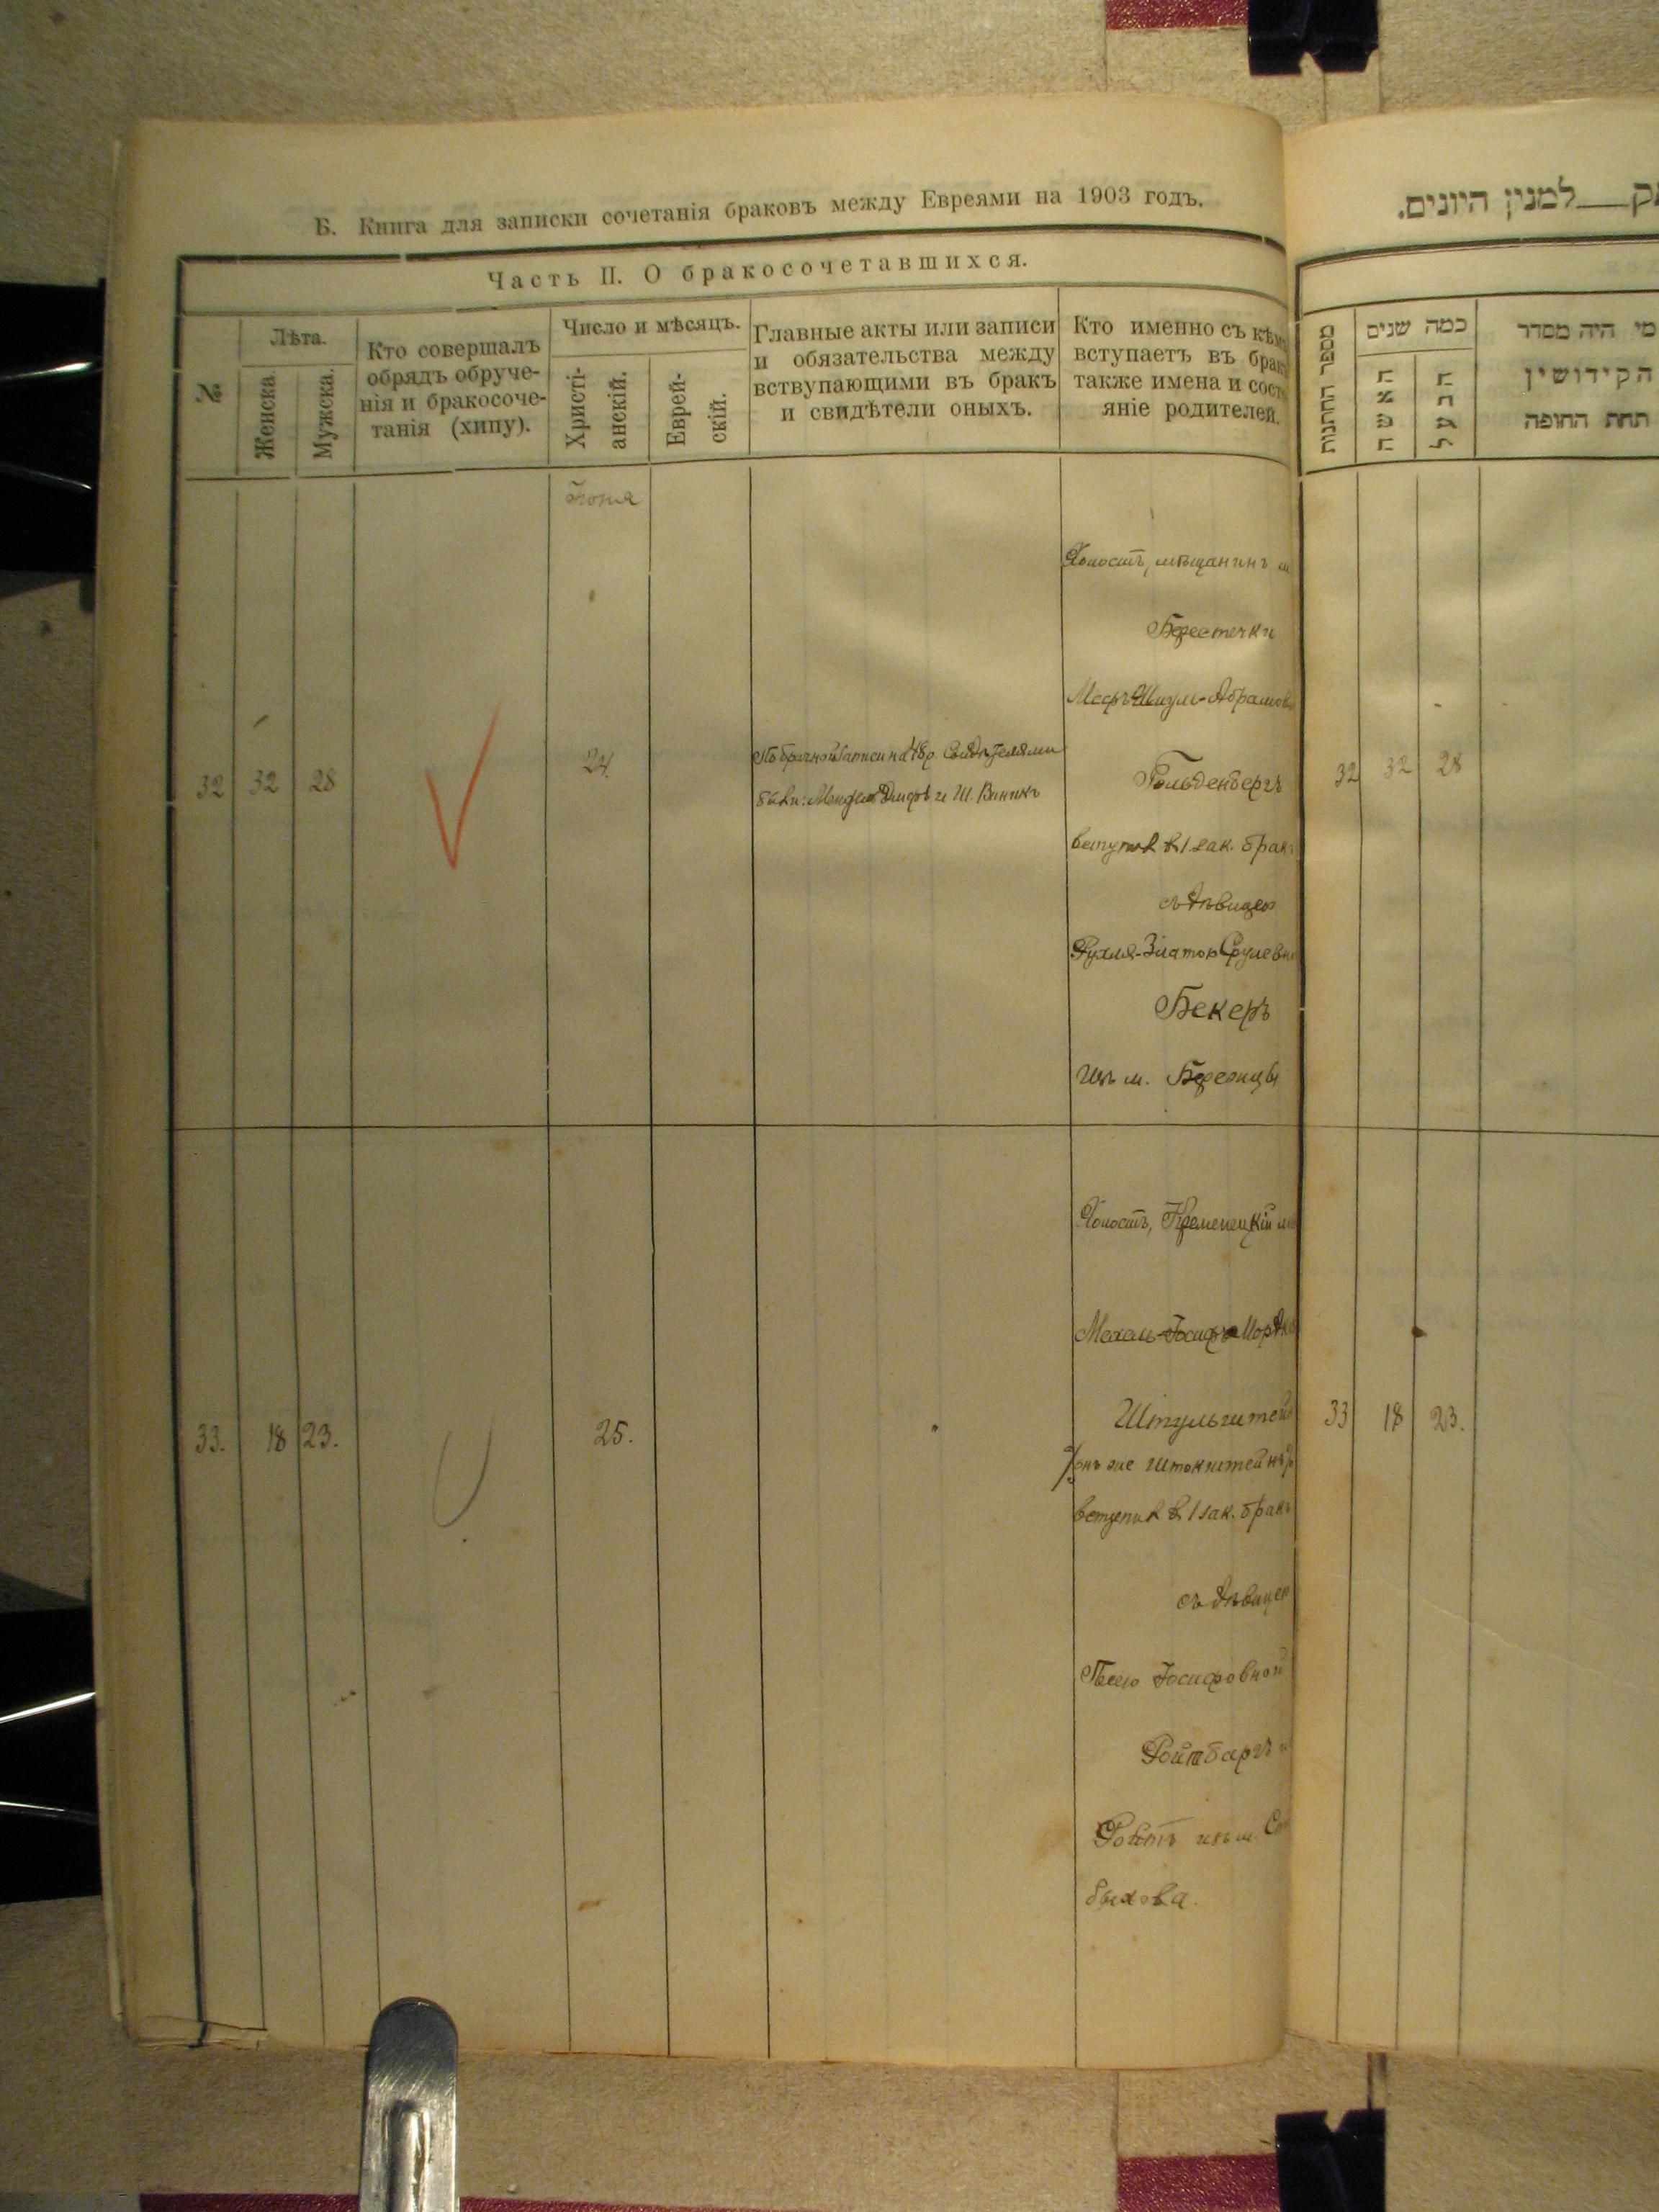 Б. Книга для записки сочетанія браковъ между Евреями на 1903 годъ.
Часть II. О бракосочетавшихся.
№
Лѣта.
Женска.
Мужска.
Кто совершалъ
обрядъ обруче-
нія и бракосоче-
танія (хипу).
Число и мѣсяцъ.
Христі-
анскій.
Еврей-
скій.
Главные акты или записи
и обязательства между
вступающими въ бракъ
и свидѣтели оныхъ.
Кто именно съ кѣмъ
вступаетъ въ бракъ
также имена и сост
яніе родителей.
32 32 28
24.
По брачной записи на 48 р. Свидѣтелями
были: и Ш. Виникъ
Холостъ, мѣщанинъ м
Берестечки
Абрамов
Гольденбергъ
вступилъ в 1 зак. бракъ
съ дѣвицею
Рухля-Златою Срулевн
Бекеръ
изъ м. Бережцы
33. 18 23.
25.
"
Холостъ, Кременецкій мѣ
Іосифъ Мордк
Штульштейн
/онъ же Штокштейнъ/
вступилъ в 1 зак. бракъ
съ дѣвицею
Песею Іосифовной
Ройтбаргъ и
Ройтъ изъ м. Ст
быхова.
למנין היונים.
מספר החתנות
כמה שנים
האשה
הבעל
מי היה מסדר
הקידושין
תחת החופה
32 32 28
33 18 23.